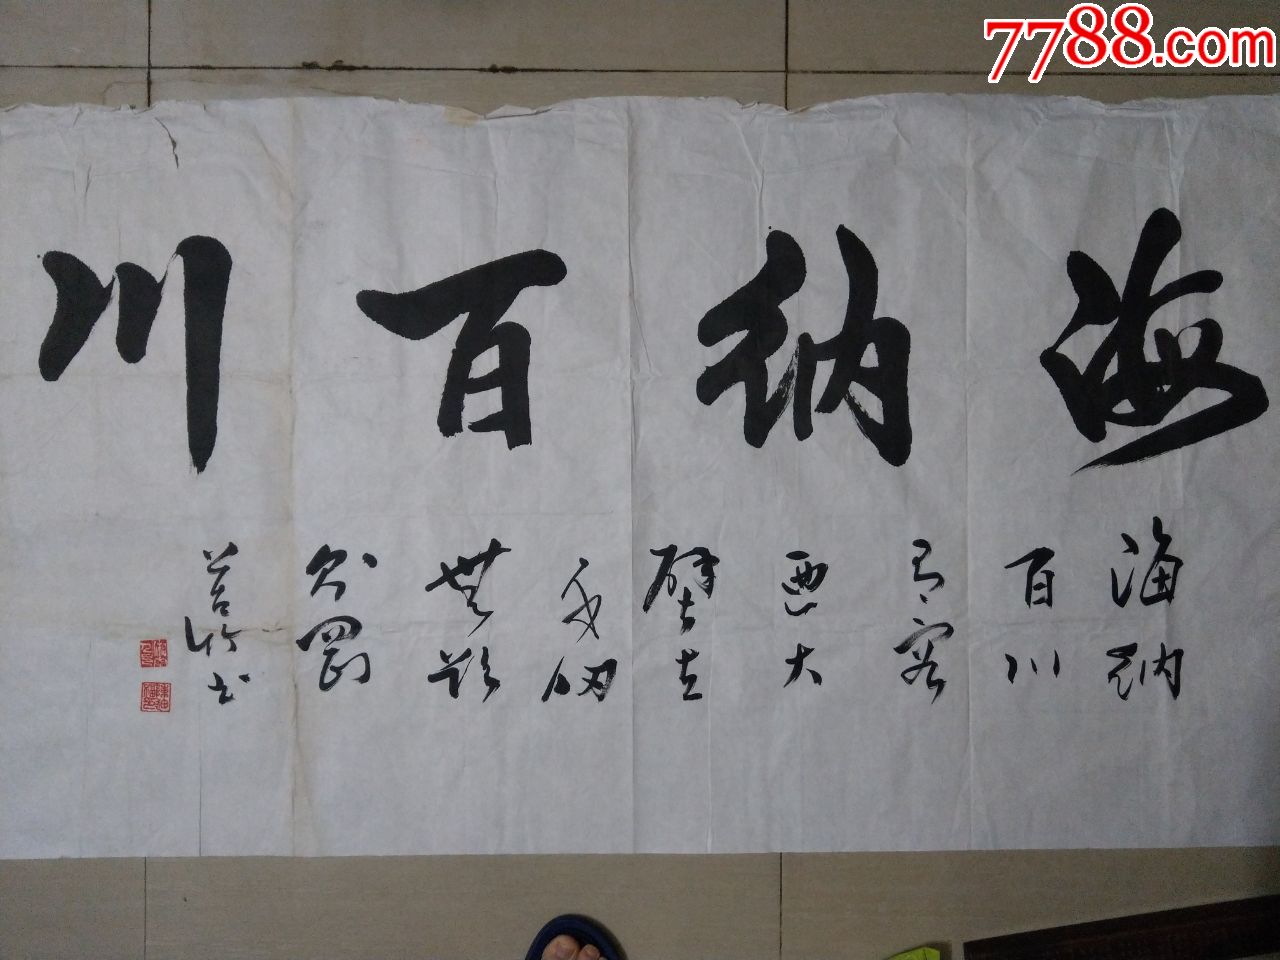 7788.com
海纳百川
海纳
百川
有容
迺大
壁立
千仞
無欲
则剛
书